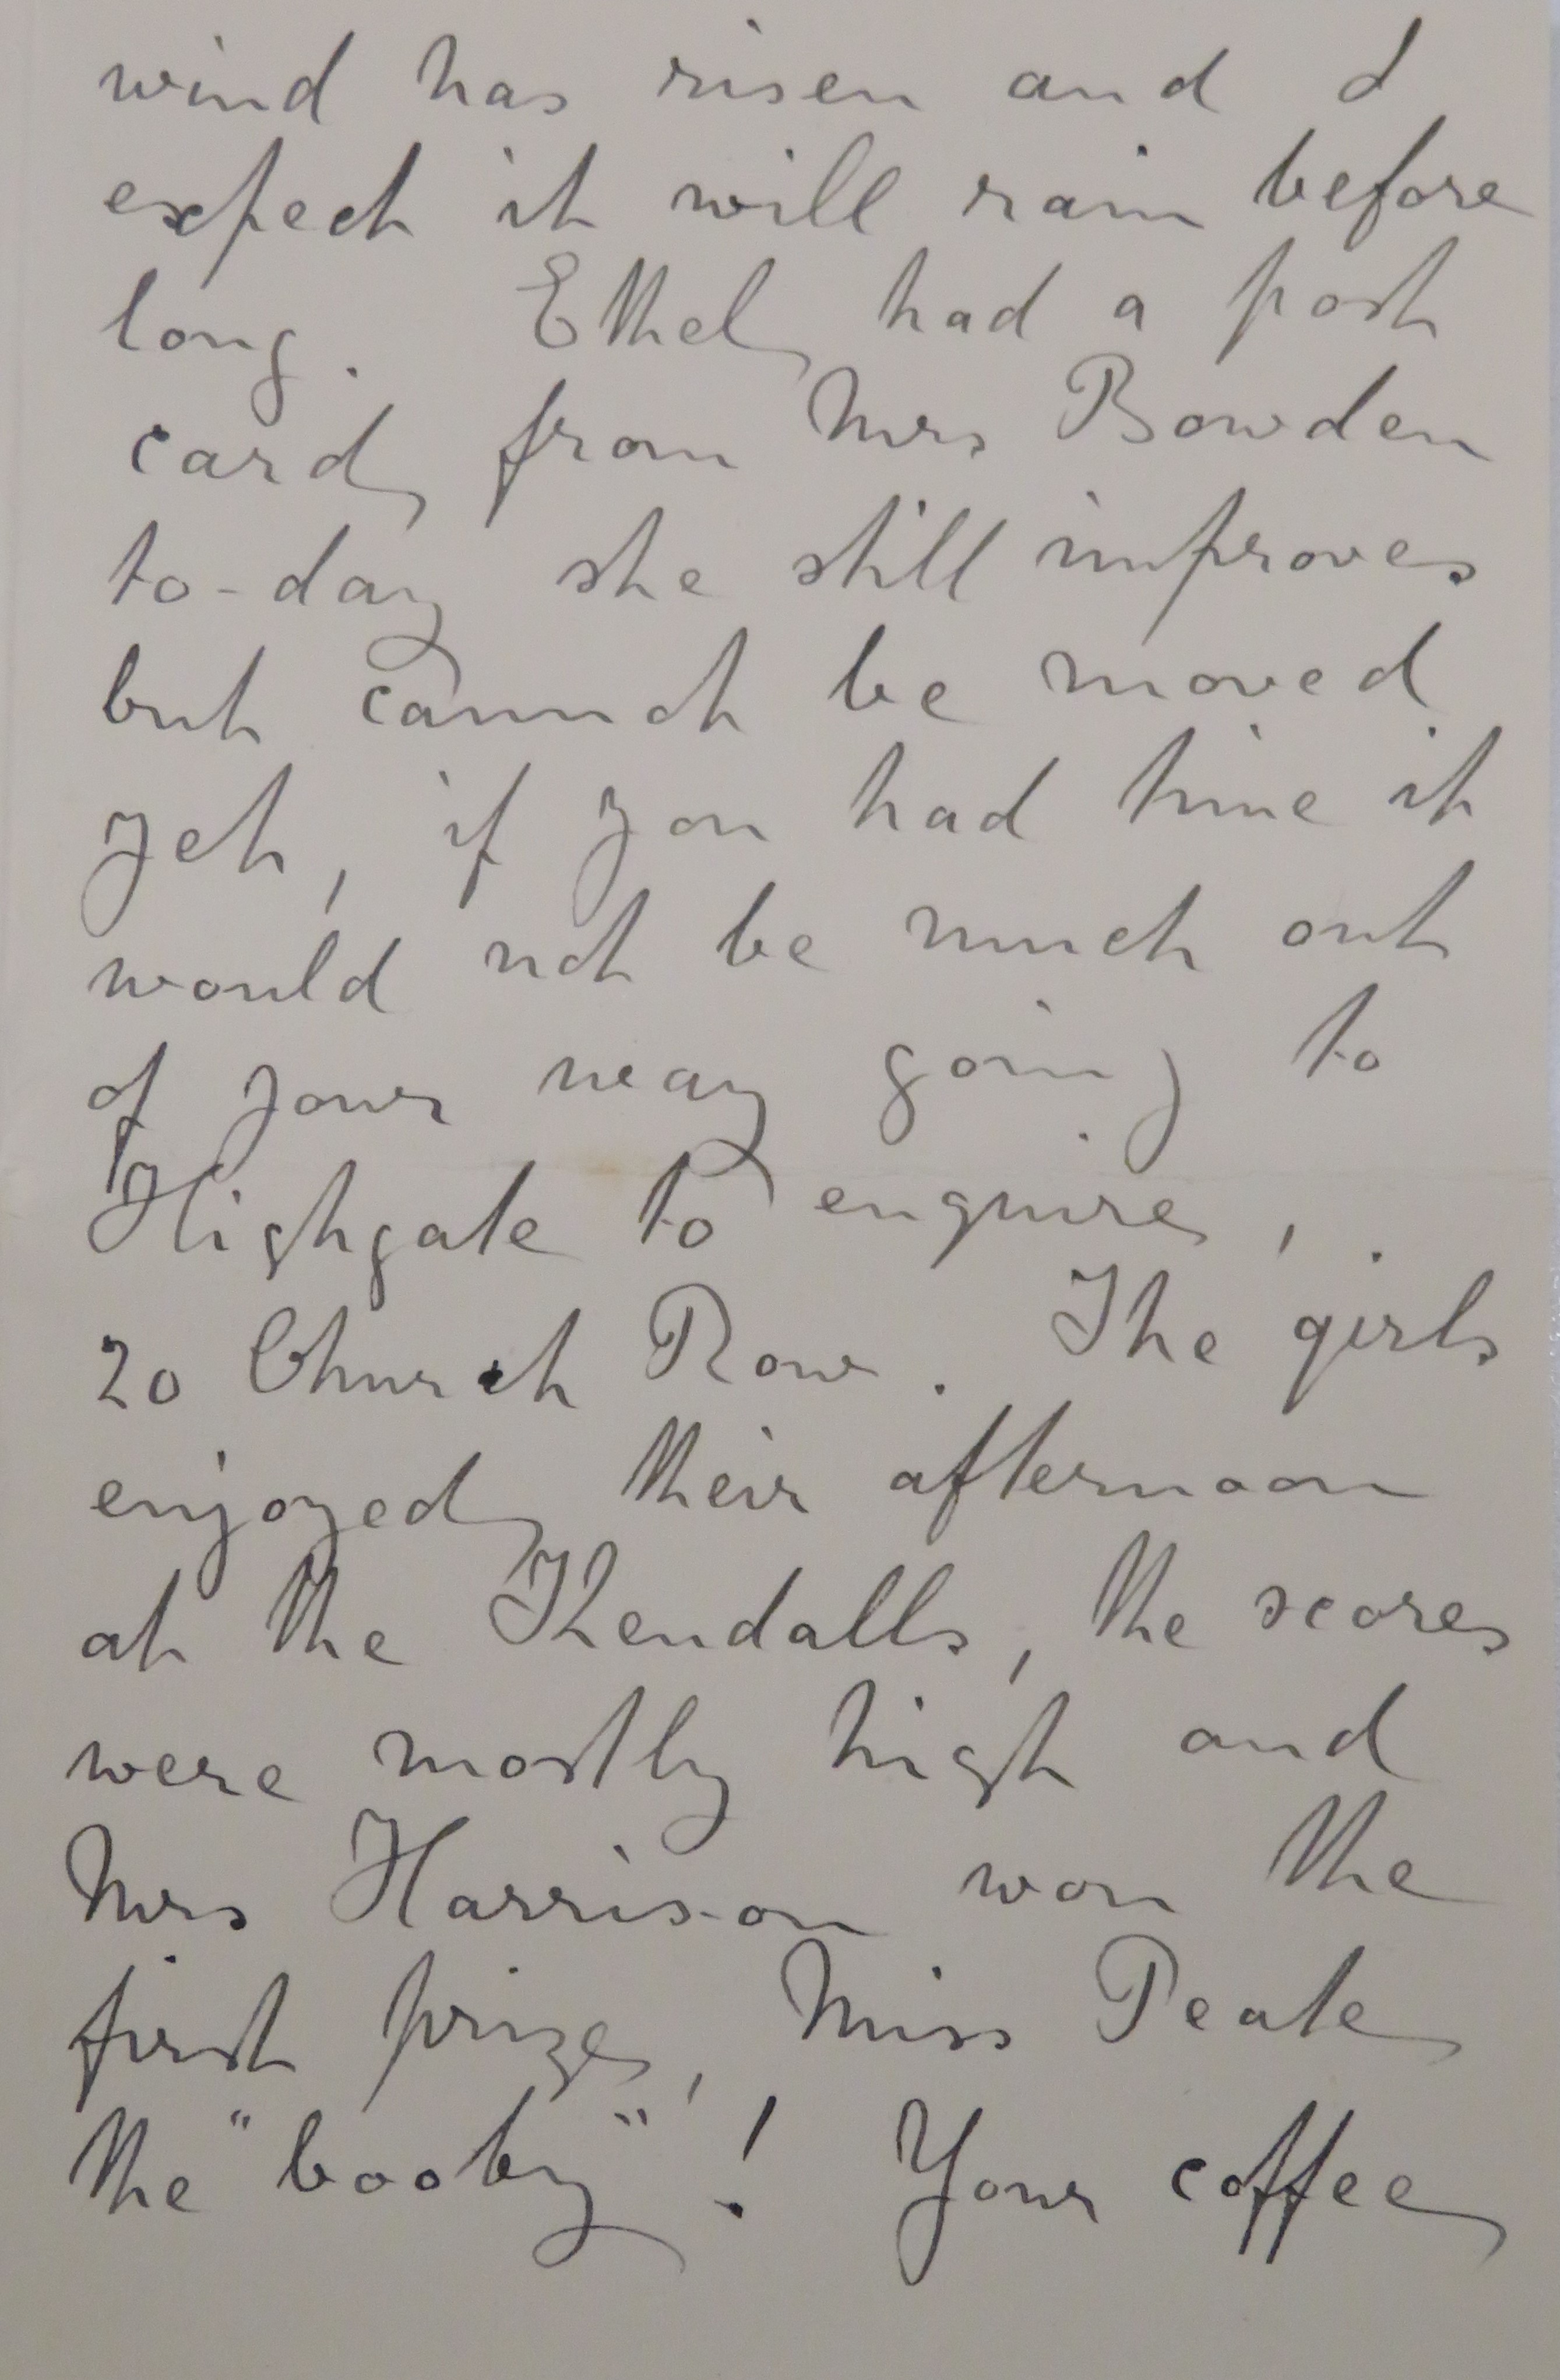 wind has risen and I
expect it will rain before
long. Ethel had a post
card from Mrs Bowden
to-day she still improves
but cannot be moved
yet, if you had time it
would not be much out
of your way going to
Highgate to enquire,
20 Church Row. The girls
enjoyed their afternoon
at the Kendalls, the scores
were mostly high and
Mrs Harrison won the
first prize, Miss Peake
the "booby"! Your coffee